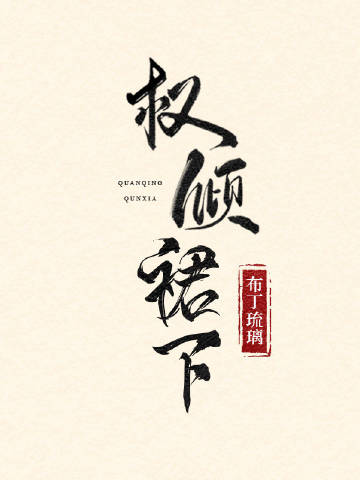 权倾裙下
QUANQING
QUNXIA
布丁琉璃